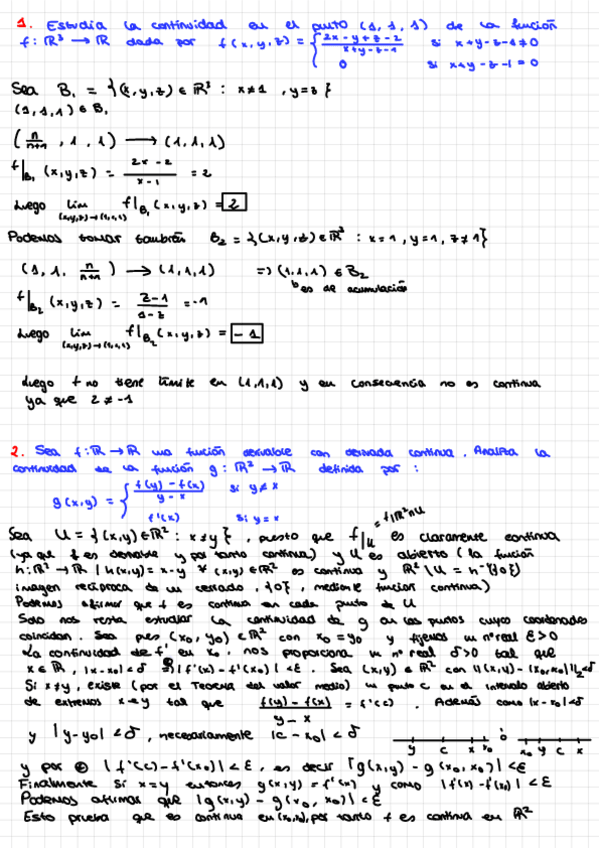 1. Estudia la continuidad en el punto (1,1,1) de la función
f: ℝ³ → ℝ dada por f(x,y,z) = { (2x-y+z-2)/(x+y-z-1) si x+y-z-1≠0
0 si x+y-z-1=0
Sea B₁ = {(x,y,z) ∈ ℝ³ : x≠1, y=z}
(1,1,1) ∈ B₁
(n/(n+1), 1, 1) → (1,1,1)
f|B₁ (x,y,z) = (2x-2)/(x-1) = 2
Luego lim (x,y,z)→(1,1,1) f|B₁ (x,y,z) = 2
Podemos tomar también B₂ = {(x,y,z) ∈ ℝ³ : x=1, y=1, z≠1}
(1, 1, n/(n+1)) → (1,1,1) => (1,1,1) ∈ B₂
es de acumulación
f|B₂ (x,y,z) = (z-1)/(1-z) = -1
Luego lim (x,y,z)→(1,1,1) f|B₂ (x,y,z) = -1
Luego f no tiene límite en (1,1,1) y en consecuencia no es continua
ya que 2 ≠ -1
2. Sea f: ℝ → ℝ una función derivable con derivada continua. Analiza la
continuidad de la función g: ℝ² → ℝ definida por:
g(x,y) = { (f(y)-f(x))/(y-x) si y≠x
f'(x) si y=x
Sea U = {(x,y) ∈ ℝ² : x≠y}, puesto que f|U = f|ℝ²∩U es claramente continua
(ya que f es derivable y por tanto continua) y U es abierto (la función
h: ℝ² → ℝ / h(x,y) = x-y ∀ (x,y) ∈ ℝ² es continua y ℝ²\U = h⁻¹({0})
imagen recíproca de un cerrado, {0}, mediante función continua)
Podemos afirmar que f es continua en cada punto de U
Solo nos resta estudiar la continuidad de g en los puntos cuyas coordenadas
coincidan. Sea pues (x₀,y₀) ∈ ℝ² con x₀=y₀ y fijemos un nº real ε>0
La continuidad de f' en x₀, nos proporciona un nº real δ>0 tal que
x ∈ ℝ, |x-x₀|<δ ⇒ |f'(x)-f'(x₀)| < ε. Sea (x,y) ∈ ℝ² con ||(x,y)-(x₀,x₀)||₂<δ
Si x≠y, existe (por el Teorema del valor medio) un punto c en el intervalo abierto
de extremos x e y tal que (f(y)-f(x))/(y-x) = f'(c). Además como |x-x₀|<δ
y |y-y₀|<δ, necesariamente |c-x₀|<δ y c x x₀ ó x₀ y c x
y por ⊛ |f'(c)-f'(x₀)| < ε, es decir |g(x,y)-g(x₀,x₀)| < ε
Finalmente si x=y entonces g(x,y) = f'(x) y como |f'(x)-f'(x₀)| < ε
Podemos afirmar que |g(x,y)-g(x₀,x₀)| < ε
Esto prueba que es continua en (x₀,x₀), por tanto f es continua en ℝ²